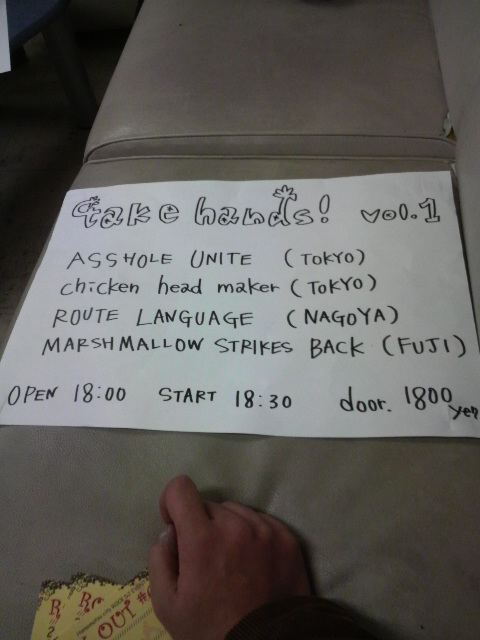 take hands! vol.1
ASSHOLE UNITE (TOKYO)
chicken head maker (TOKYO)
ROUTE LANGUAGE (NAGOYA)
MARSHMALLOW STRIKES BACK (FUJI)
OPEN 18:00 START 18:30 door. 1800 yen
OUT